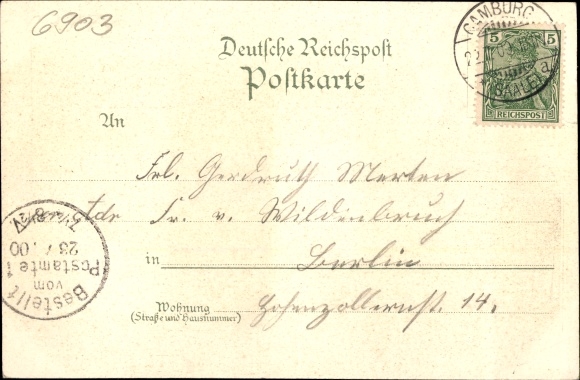 6903
Deutsche Reichspost
Postkarte
CAMBURG
(SAALE)
a
5 5
REICHSPOST
An
Frl. Gerdruth Merten
Adr. Fr. v. Wildenbruch
in Berlin
Wohnung
(Straße und Hausnummer)
Hohenzollernst. 14.
Bestellt
vom
Postamte
23 7. 00